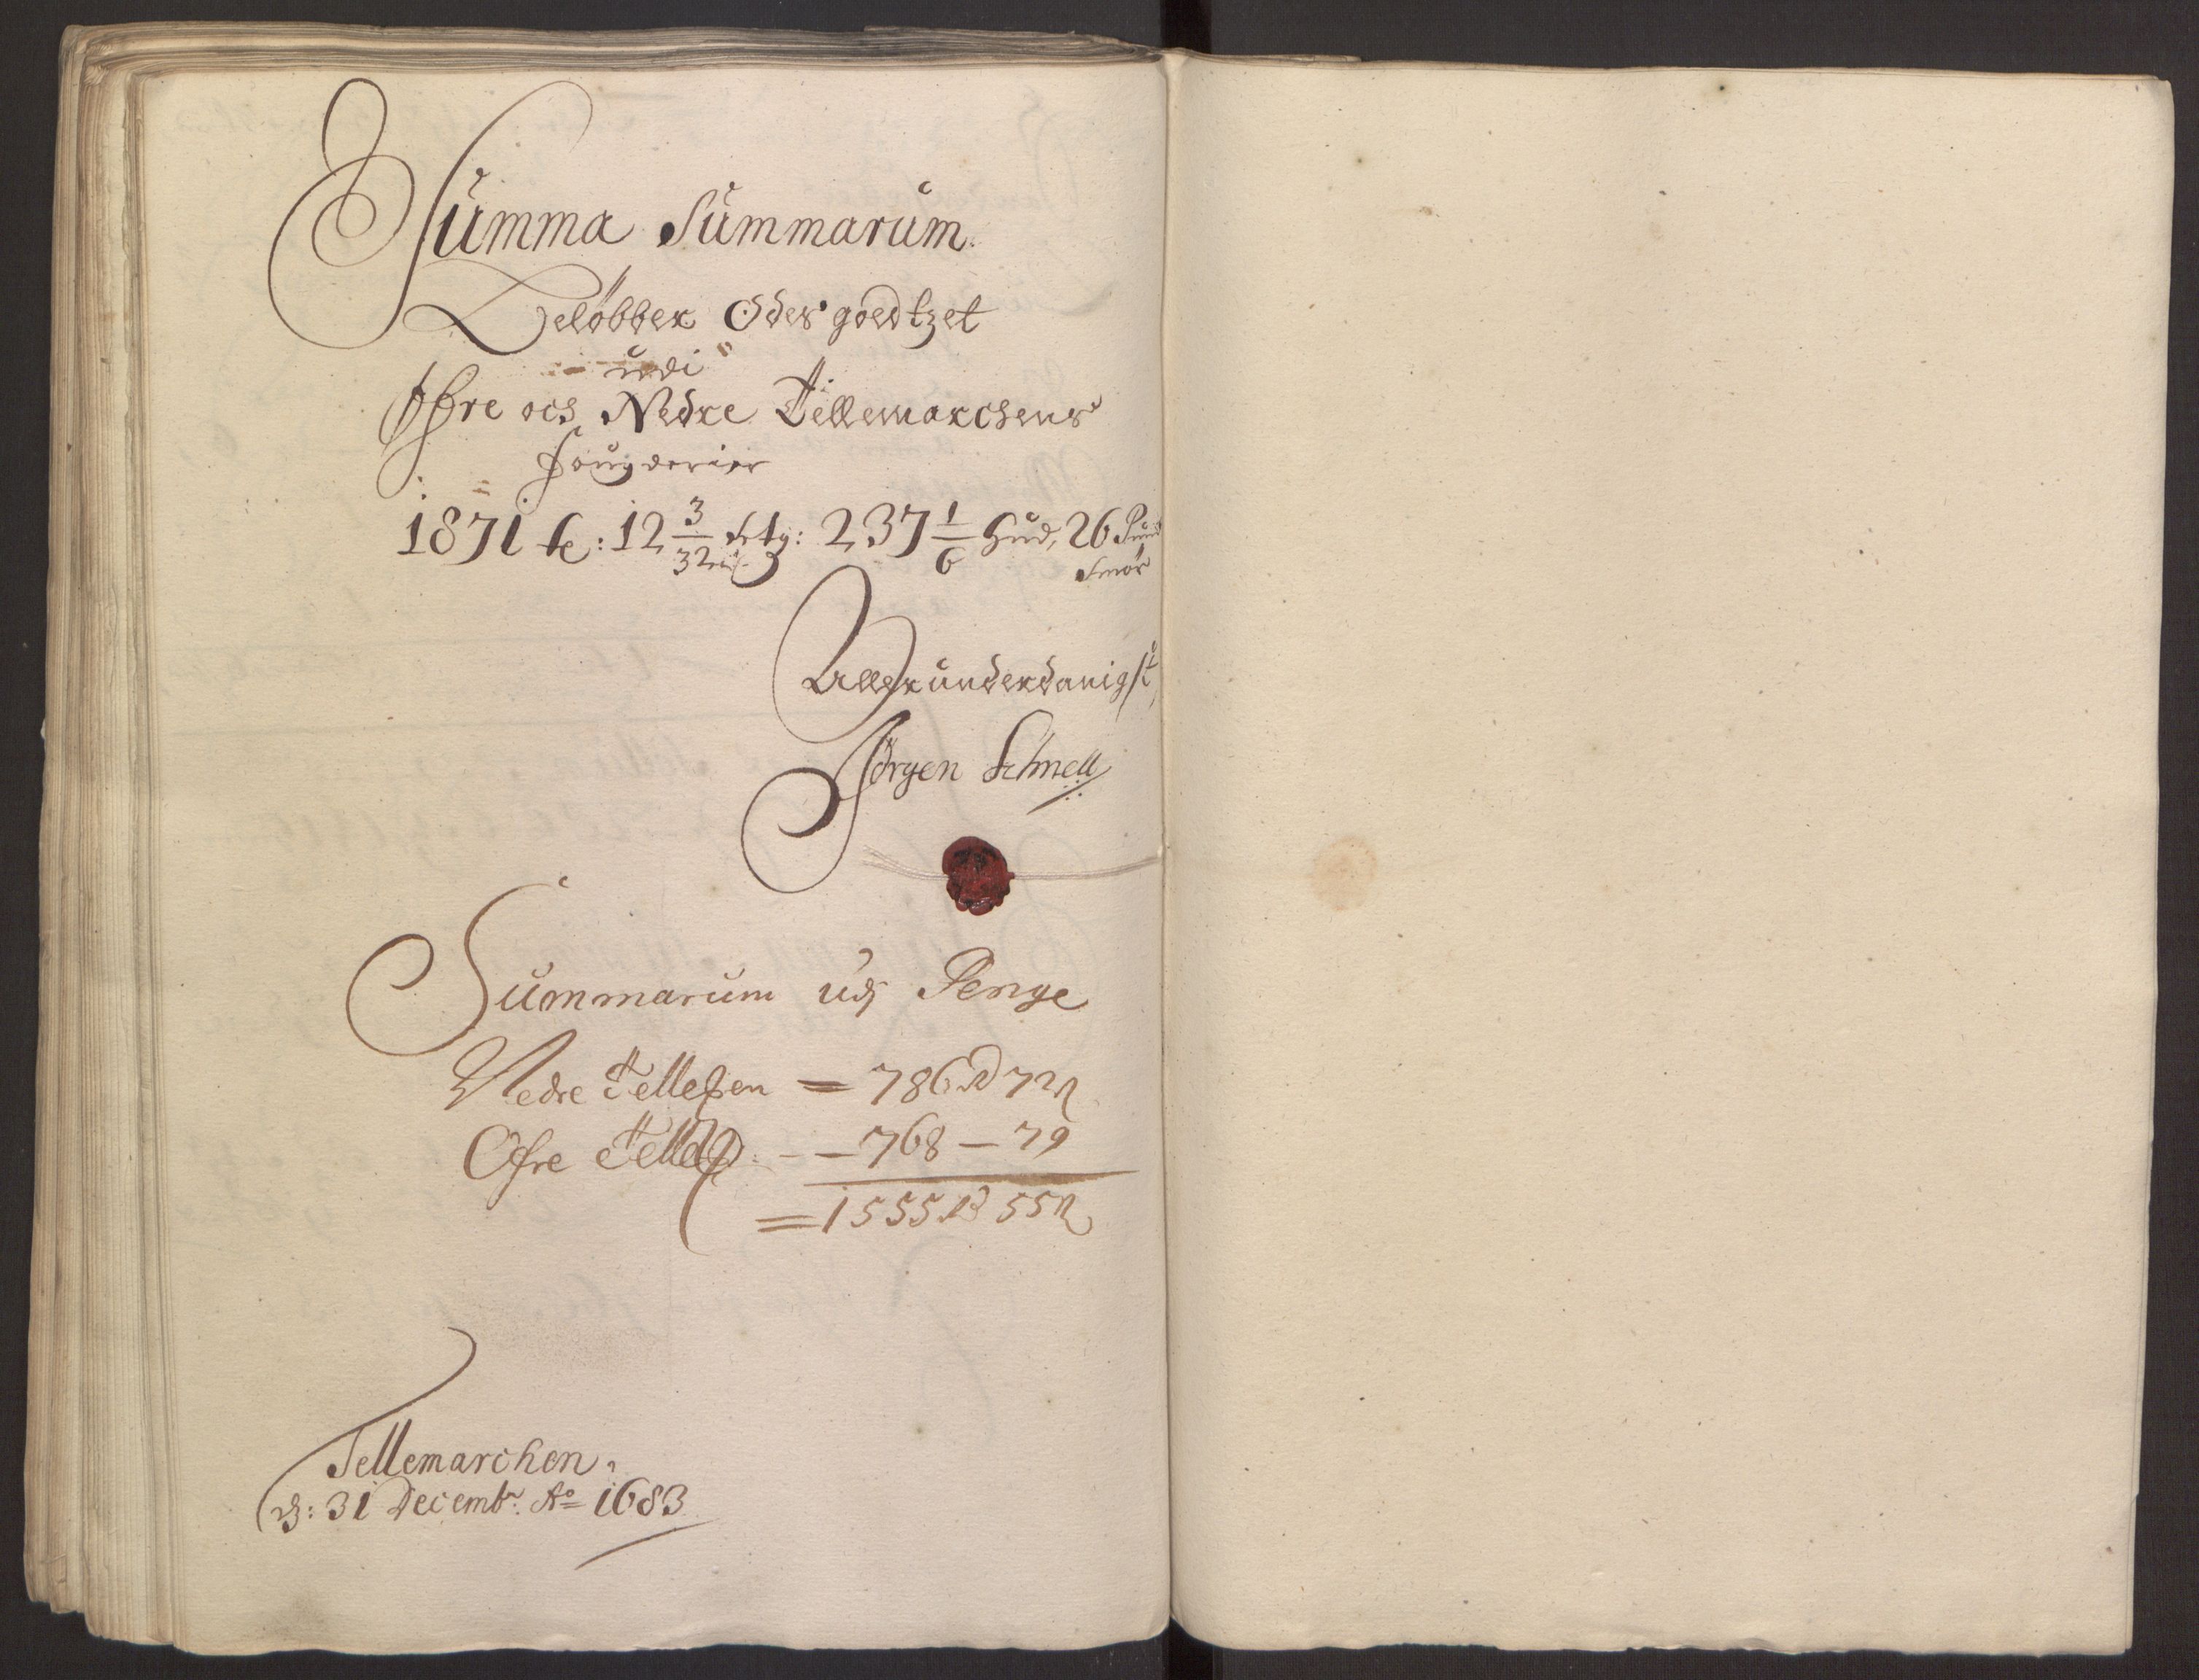 Summa Summarum
Beløbber Odels goedtzet
udi
Øfre och Nedre Tellemarchens
fougderier
1871 tr: 12 3/32 setg: 237 1/6 Hud, 26 Pund
Smør
Aller underdanigst
Jørgen Schnell
Summarum udj Penge
Nedre Tellepen = 786 rd 72 s
Øfre Tellep: - - 768 - 79
= 1555 rd 55 s
Tellemarchen,
d: 31 Decembr: Ao 1683